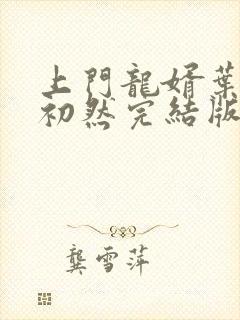 上門龍婿葉
初然完結版
龔雪萍